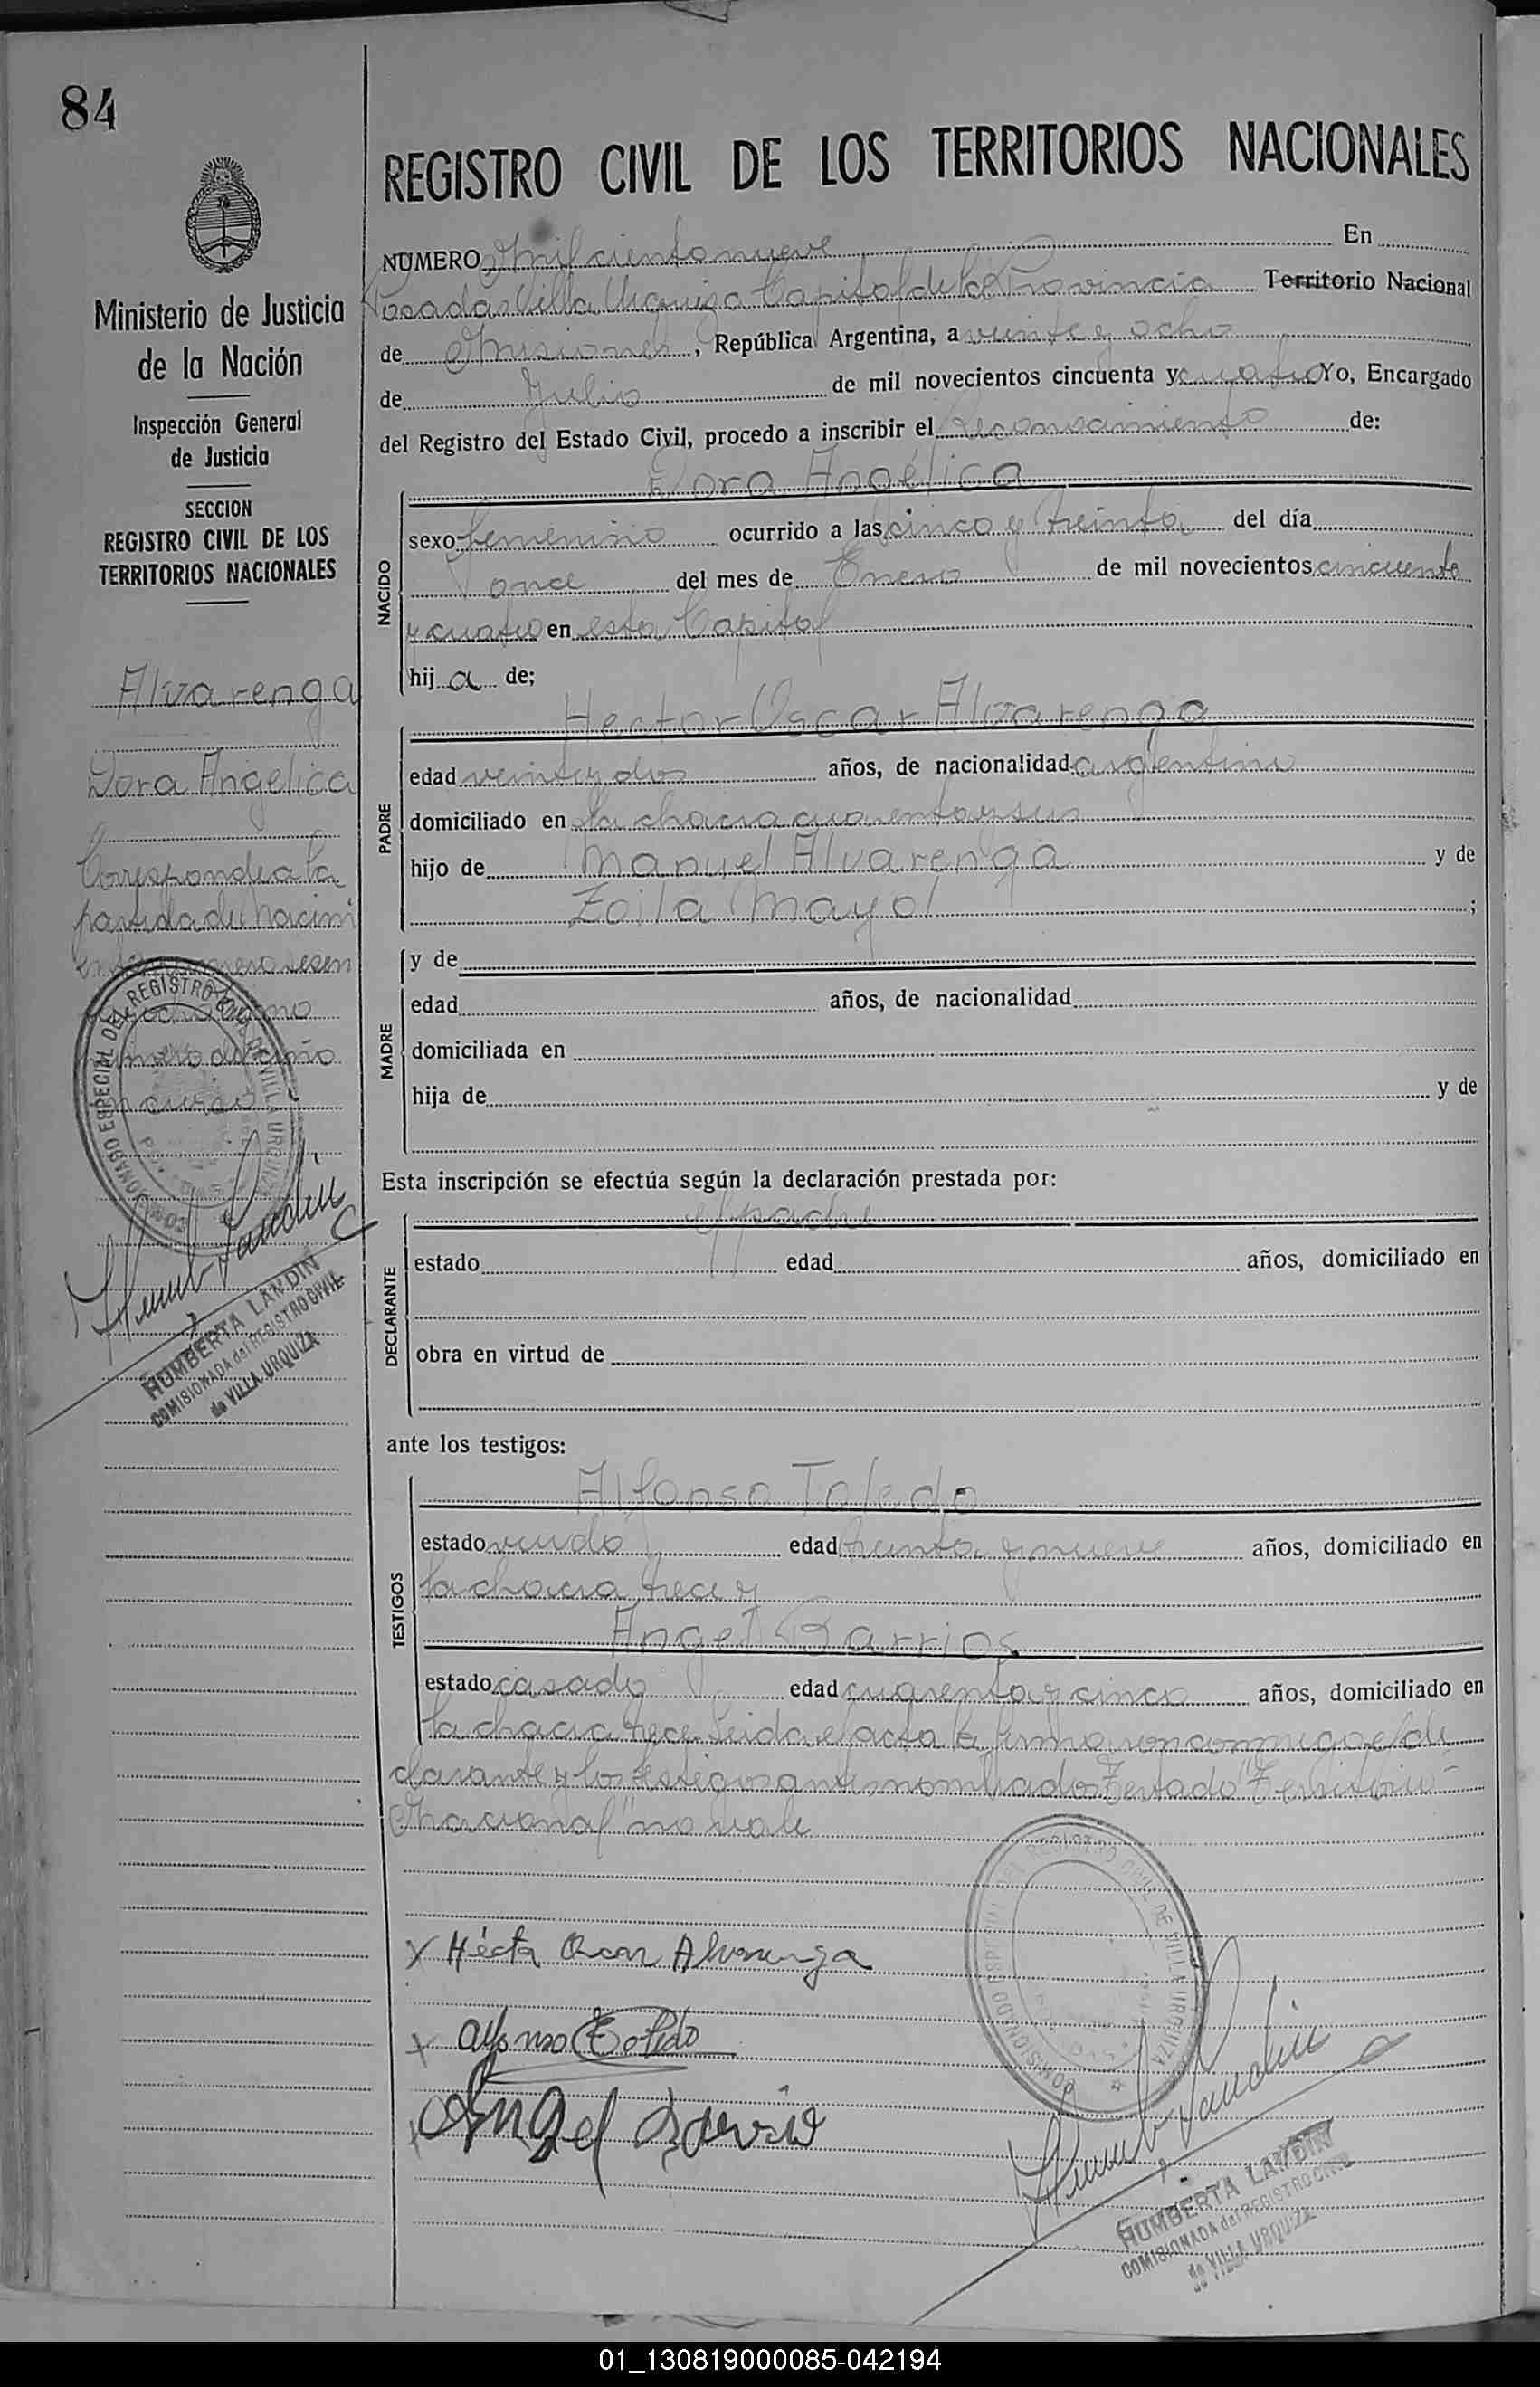 84
Ministerio de Justicia
de la Nación
Inspección General
de Justicia
SECCION
REGISTRO CIVIL DE LOS
TERRITORIOS NACIONALES
Alvarenga
Dora Angelica
Corresponde a la
partida de Nacimi
ento número sesen
ocho
del año
en curso
COMISIONADO ESPECIAL DEL REGISTRO CIVIL DE VILLA URQUIZA
HUMBERTA LANDIN
COMISIONADA del REGISTRO CIVIL
de VILLA URQUIZA
REGISTRO CIVIL DE LOS TERRITORIOS NACIONALES
NUMERO Mil ciento nueve En
Posadas Villa Urquiza Capital de la Provincia Territorio Nacional
de Misiones, República Argentina, a veinte y ocho
de Julio de mil novecientos cincuenta y cuatro Yo, Encargado
del Registro del Estado Civil, procedo a inscribir el Reconocimiento de:
Dora Angélica
NACIDO
sexo femenino ocurrido a las cinco y treinta del día
once del mes de Enero de mil novecientos cincuenta
y cuatro en esta Capital
hija de;
Hector Oscar Alvarenga
PADRE
edad veinte y dos años, de nacionalidad argentino
domiciliado en la chacra cuarenta y seis
hijo de Manuel Alvarenga y de
Zoila Mayol ;
MADRE
y de
edad años, de nacionalidad
domiciliada en
hija de y de
Esta inscripción se efectúa según la declaración prestada por:
el padre
DECLARANTE
estado edad años, domiciliado en
obra en virtud de
ante los testigos:
TESTIGOS
Alfonso Toledo
estado viudo edad treinta y nueve años, domiciliado en
la chacra trece y
Angel Barrios
estado casado edad cuarenta y cinco años, domiciliado en
la chacra trece. Leida el acta la firmaron conmigo el de
clarante y los testigos antes nombrados Testado "Territorio
Nacional" no vale
x Héctor Oscar Alvarenga
x Alfonso Toledo
x Angel Barrios
COMISIONADO ESPECIAL DEL REGISTRO CIVIL DE VILLA URQUIZA
HUMBERTA LANDIN
COMISIONADA del REGISTRO CIVIL
de VILLA URQUIZA
01_130819000085-042194